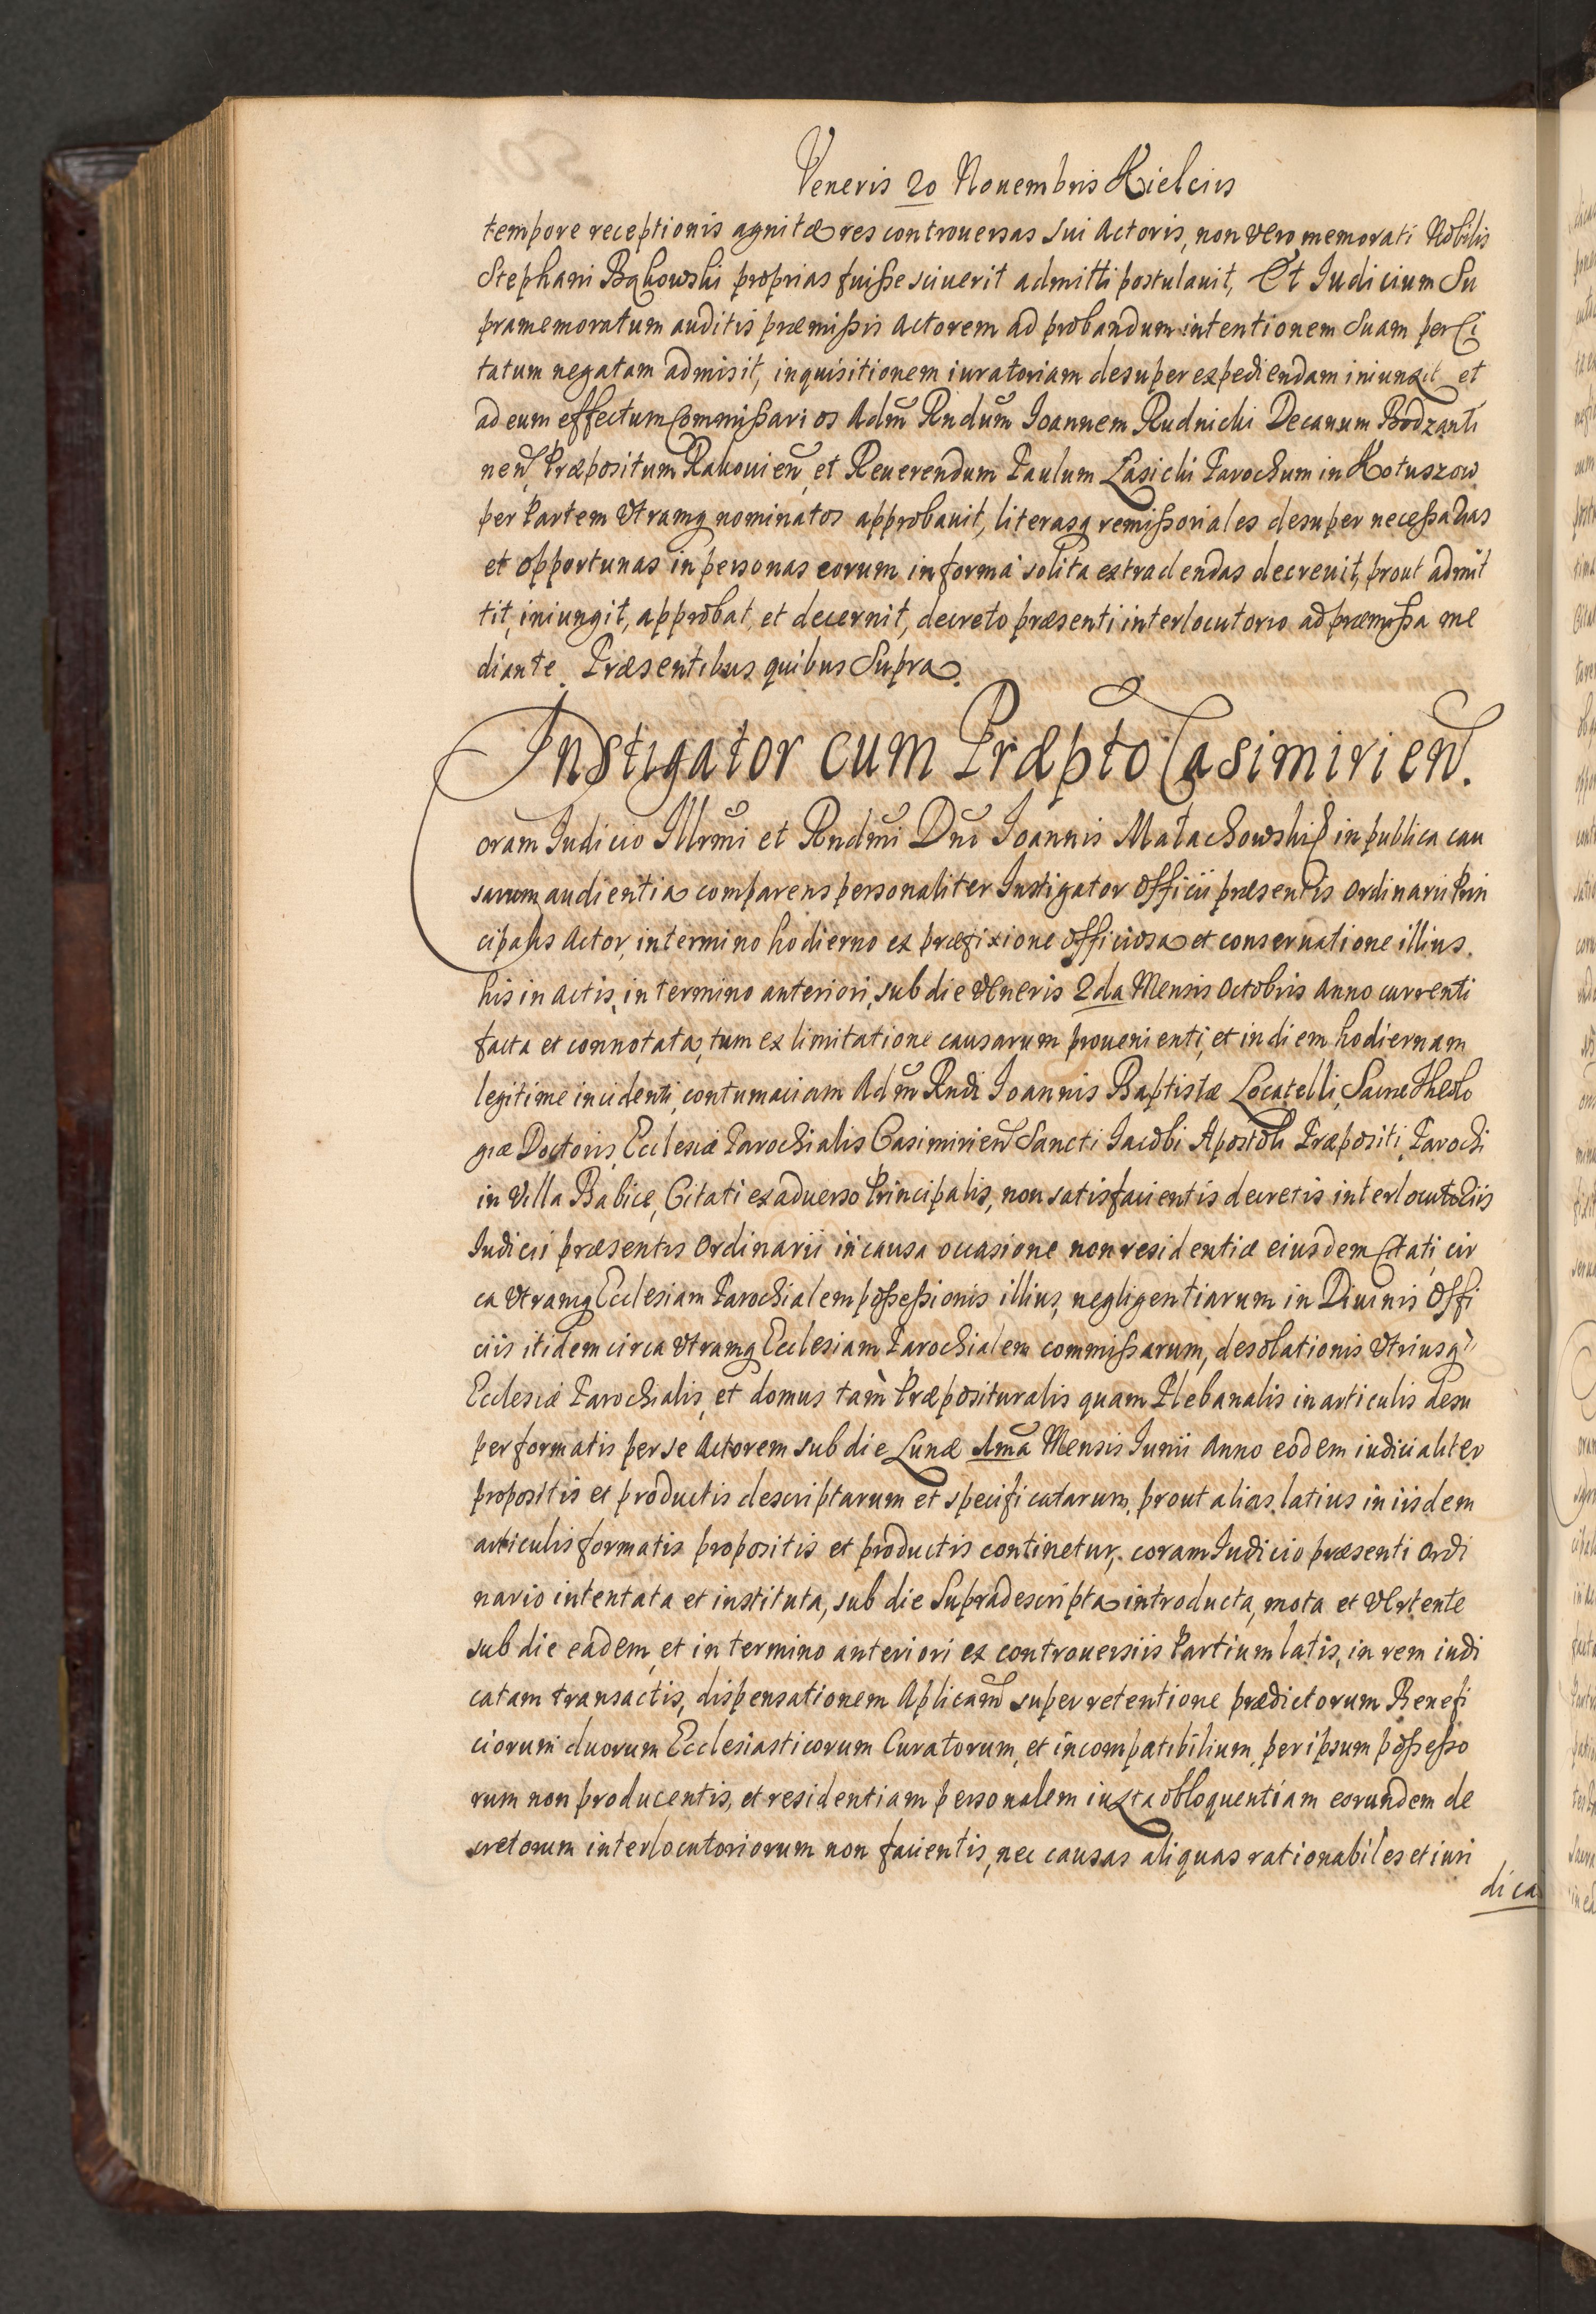 Veneris 20 Nouembris Kielciis
tempore receptionis agnitæ res controuersas sui Actoris, non vero memorati Nobilis
Stephani Bąkowski proprias fuisse sciuerit admitti postulauit, Et Iudicium Su
pramemoratum auditis præmissis Actorem ad probandum intentionem suam per Ci
tatum negatam admisit, inquisitionem iuratoriam desuper expediendam iniunxit et
ad eum effectum Commissarios Adm̃ Rndum̃ Ioannem Rudnicki Decanum Bodzanti
nen̄ Præpositum Rakouien̄ et Reuerendum Paulum Łasicki Parochum in Kotuszow
per Partem Vtramq nominatos approbauit, literasq remissoriales desuper necessarias
et opportunas in personas eorum in forma solita extradendas decreuit, prout admit
tit, iniungit, approbat, et decernit, decreto præsenti interlocutorio ad præmissa me
diante. Præsentibus quibus Supra.
Instigator cum Præpto Casimirien̄.
Coram Iudicio Illrm̃i et Rndm̃i Dn̄i Ioannis Małachowski in publica cau
sarum audientia comparens personaliter Instigator Officii præsentis Ordinarii Prin
cipalis Actor, in termino hodierno ex præfixione officiosa et conseruatione illius
his in Actis, in termino anteriori, sub die Veneris 2da Mensis Octobris Anno currenti
facta et connotata, tum ex limitatione causarum prouenienti, et in diem hodiernam
legitime incidenti, contumaciam Adm̃ Rndi Ioannis Baptistæ Locatelli, Sacræ Theolo
giæ Doctoris, Ecclesiæ Parochialis Casimirien̄ Sancti Iacobi Apostoli Præpositi, Parochi
in Villa Babice, Citati ex aduerso Principalis, non satisfacientis decretis interlocutoriis
Iudicii præsentis Ordinarii in causa occasione non residentiæ eiusdem Citati cir
ca Vtramq Ecclesiam Parochialem possessionis illius, negligentiarum in Diuinis Offi
ciis itidem circa Vtramq Ecclesiam Parochialem commissarum, desolationis Vtriusq
Ecclesiæ Parochialis, et domus tam Præposituralis quam Plebanalis in articulis desu
per formatis per se Actorem sub die Lunæ 1ma Mensis Iunii Anno eodem iudicialiter
propositis et productis descriptarum et specificatarum, prout alias latius in iisdem
articulis formatis propositis et productis continetur, coram Iudicio præsenti Ordi
nario intentata et instituta, sub die Supradescripta introducta, mota et Vertente
sub die eadem, et in termino anteriori ex controuersiis Partium latis, in rem iudi
catam transactis, dispensationem Aplicam̃ super retentione prædictorum Benefi
ciorum duorum Ecclesiasticorum Curatorum, et incompatibilium, per ipsum possesso
rum non producentis, et residentiam personalem iuxta obloquentiam eorundem de
cretorum interlocutoriorum non facientis, nec causas aliquas rationabiles et iuri
dica